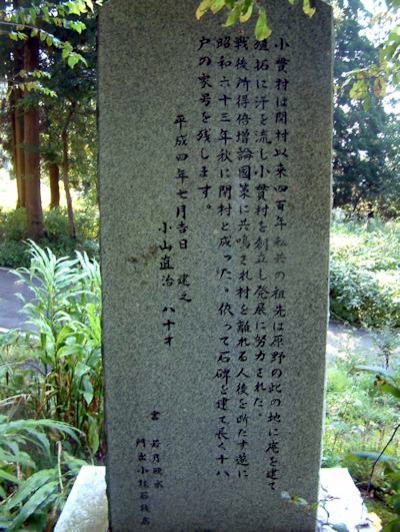 小貫村は開村以来四百年私共の祖先は原野の此の地に庵を建て
開拓に汗を流し小貫村を創立し発展に努力された。
戦後所得倍増論國策に共鳴され村を離れる人後を断たず遂に
昭和六十三年秋に閉村と成った。依って石碑を建て長く十八
戸の家号を残します。
平成四年七月吉日 建之
小山直治 八十才
書
門出小林石材店